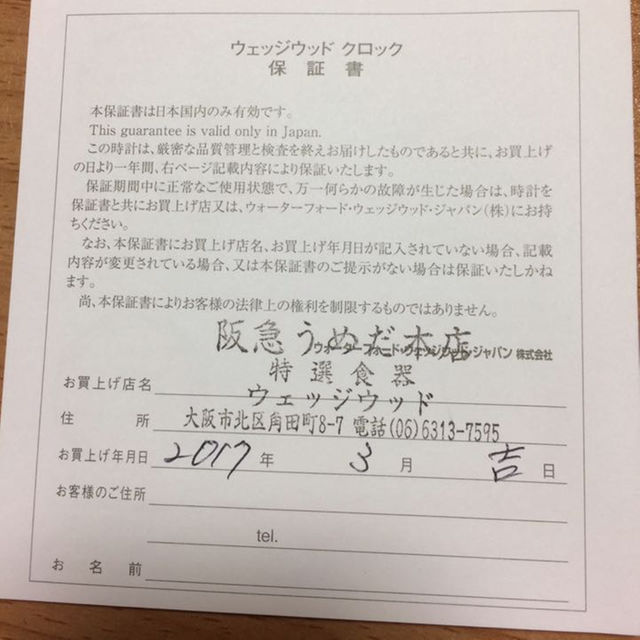 ウェッジウッド クロック
保証書
本保証書は日本国内のみ有効です。
This guarantee is valid only in Japan.
この時計は、厳密な品質管理と検査を終えお届けしたものであると共に、お買上げ
の日より一年間、右ページ記載内容により保証いたします。
保証期間中に正常なご使用状態で、万一何らかの故障が生じた場合は、時計を
保証書と共にお買上げ店又は、ウォーターフォード・ウェッジウッド・ジャパン(株)にお持
ちください。
なお、本保証書にお買上げ店名、お買上げ年月日が記入されていない場合、記載
内容が変更されている場合、又は本保証書のご提示がない場合は保証いたしかね
ます。
尚、本保証書によりお客様の法律上の権利を制限するものではありません。
阪急うめだ本店
ウォーターフォード・ウェッジウッド・ジャパン 株式会社
特選食器
お買上げ店名 ウェッジウッド
住所 大阪市北区角田町8-7 電話(06)6313-7595
お買上げ年月日 2017年 3月 吉日
お客様のご住所
tel.
お名前